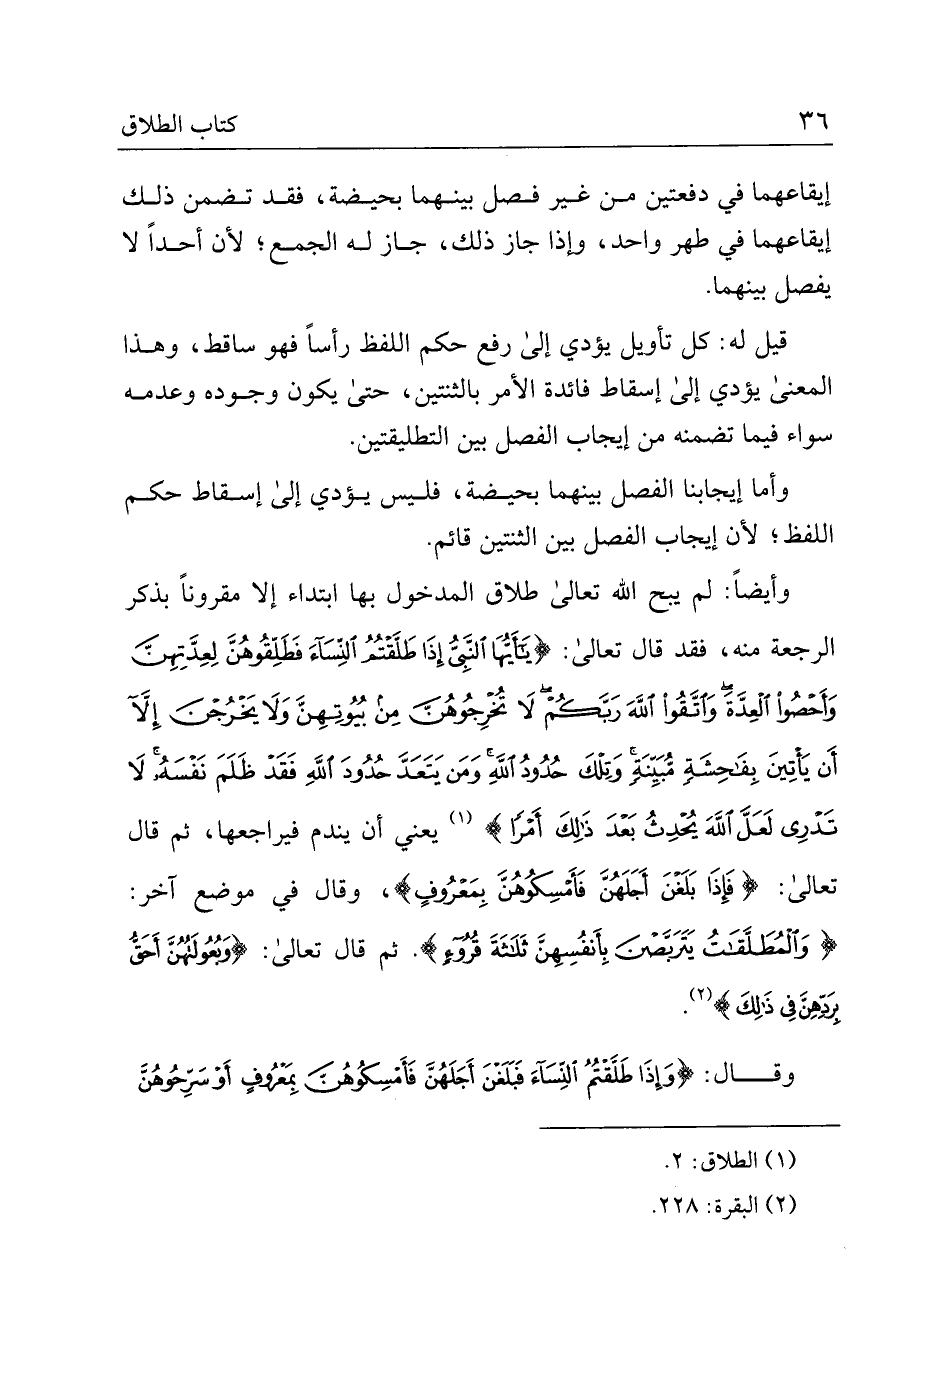 ٣٦ كتاب الطلاق
إيقاعهما في دفعتين من غير فصل بينهما بحيضة، فقد تضمن ذلك
إيقاعهما في طهر واحد، وإذا جاز ذلك، جاز له الجمع؛ لأن أحداً لا
يفصل بينهما.
قيل له: كل تأويل يؤدي إلىٰ رفع حكم اللفظ رأساً فهو ساقط، وهذا
المعنىٰ يؤدي إلىٰ إسقاط فائدة الأمر بالثنتين، حتىٰ يكون وجوده وعدمه
سواء فيما تضمنه من إيجاب الفصل بين التطليقتين.
وأما إيجابنا الفصل بينهما بحيضة، فليس يؤدي إلىٰ إسقاط حكم
اللفظ؛ لأن إيجاب الفصل بين الثنتين قائم.
وأيضاً: لم يبح الله تعالىٰ طلاق المدخول بها ابتداء إلا مقروناً بذكر
الرجعة منه، فقد قال تعالىٰ: ﴿يَٰٓأَيُّهَا ٱلنَّبِيُّ إِذَا طَلَّقۡتُمُ ٱلنِّسَآءَ فَطَلِّقُوهُنَّ لِعِدَّتِهِنَّ
وَأَحۡصُواْ ٱلۡعِدَّةَۖ وَٱتَّقُواْ ٱللَّهَ رَبَّكُمۡۖ لَا تُخۡرِجُوهُنَّ مِنۢ بُيُوتِهِنَّ وَلَا يَخۡرُجۡنَ إِلَّآ
أَن يَأۡتِينَ بِفَٰحِشَةٖ مُّبَيِّنَةٖۚ وَتِلۡكَ حُدُودُ ٱللَّهِۚ وَمَن يَتَعَدَّ حُدُودَ ٱللَّهِ فَقَدۡ ظَلَمَ نَفۡسَهُۥۚ لَا
تَدۡرِى لَعَلَّ ٱللَّهَ يُحۡدِثُ بَعۡدَ ذَٰلِكَ أَمۡرٗا﴾ (١) يعني أن يندم فيراجعها، ثم قال
تعالىٰ: ﴿فَإِذَا بَلَغۡنَ أَجَلَهُنَّ فَأَمۡسِكُوهُنَّ بِمَعۡرُوفٍ﴾، وقال في موضع آخر:
﴿وَٱلۡمُطَلَّقَٰتُ يَتَرَبَّصۡنَ بِأَنفُسِهِنَّ ثَلَٰثَةَ قُرُوٓءٖ﴾. ثم قال تعالىٰ: ﴿وَبُعُولَتُهُنَّ أَحَقُّ
بِرَدِّهِنَّ فِى ذَٰلِكَ﴾(٢).
وقال: ﴿وَإِذَا طَلَّقۡتُمُ ٱلنِّسَآءَ فَبَلَغۡنَ أَجَلَهُنَّ فَأَمۡسِكُوهُنَّ بِمَعۡرُوفٍ أَوۡ سَرِّحُوهُنَّ
(١) الطلاق: ٢.
(٢) البقرة: ٢٢٨.